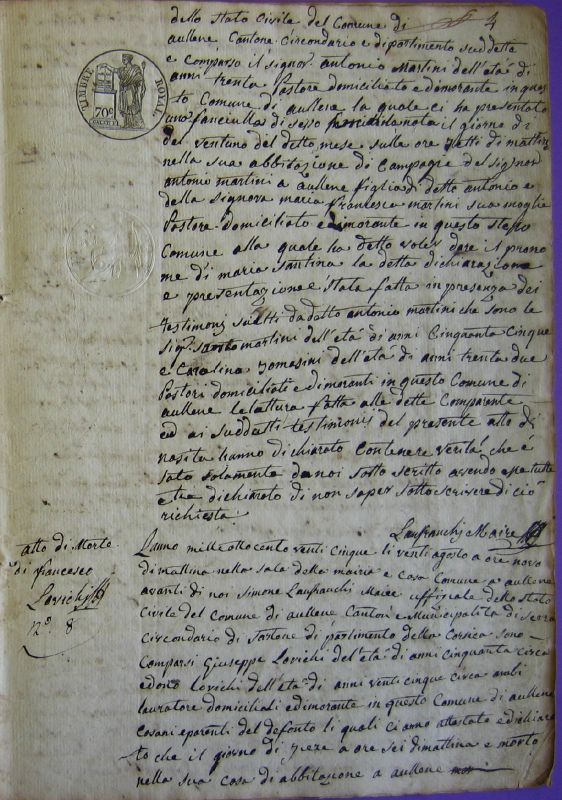 4
dello Stato Civile del Comune di
aullene Cantone Circondario e dipartimento suddetta
e comparso il signor antonio Martini dell'età di
anni trenta Pastore domiciliato e dimorante in ques
to Comune di aullene la quale ci ha presentato
una fanciulla di sesso nata il giorno di
del ventuno del detto mese sulle ore setti di mattin
nella sua abbitazione di Campagie del signor
antonio martini a aullene figlia di detto antonio e
della signora maria francesca martini sua moglie
Pastore domiciliato e dimorante in questo stesso
Comune alla quale ha detto voler dare il prono
me di maria Santina la detta dichiarazione
e presentazione e stata fatta in presenza dei
testimonj scielti da detto antonio martini che sono le
sig.ri martini dell'età di anni Cinquanta Cinque
e Carolina Tomasini dell'età di anni trenta due
Pastori domiciliati e dimoranti in questo Comune di
aullene le lattura fatta alle dette Comparente
ed ai suddetti testimonij del presente atto di
nasita hanno dichiarato Contenere verità che è
stato solamente da noi sotto scritto avendo epa tutte
e tre dichiarato di non saper sottoscrivere di ciò
richiesta
Lanfranchj Maire
TIMBRE ROYAL
70c
atto di Morte
di francesco
Lovichj
n.o 8
L'anno mille otto cento venti cinque li venti agosto a ore novo
di mattina nella sala della mairia e casa Comune a aullene
avanti di noi Simone Lanfranchj Maire uffiziale dello stato
Civile del Comune di aullene Cantone e Municipalità di Serra
Circondario di Sartene dipartimento della Corsica sono
Comparsi Giuseppe Lovichi del'età di anni cinquanta circa
e dono Lovichi dell'età di anni venti cinque circa ambi
lavratore domiciliati e dimorante in questo Comune di aullene
e parenti del defonto li quali ci anno attestato e dichiara
to che il giorno di jere a ore sei di mattina e morto
nella sua casa di abbitazione a aullene